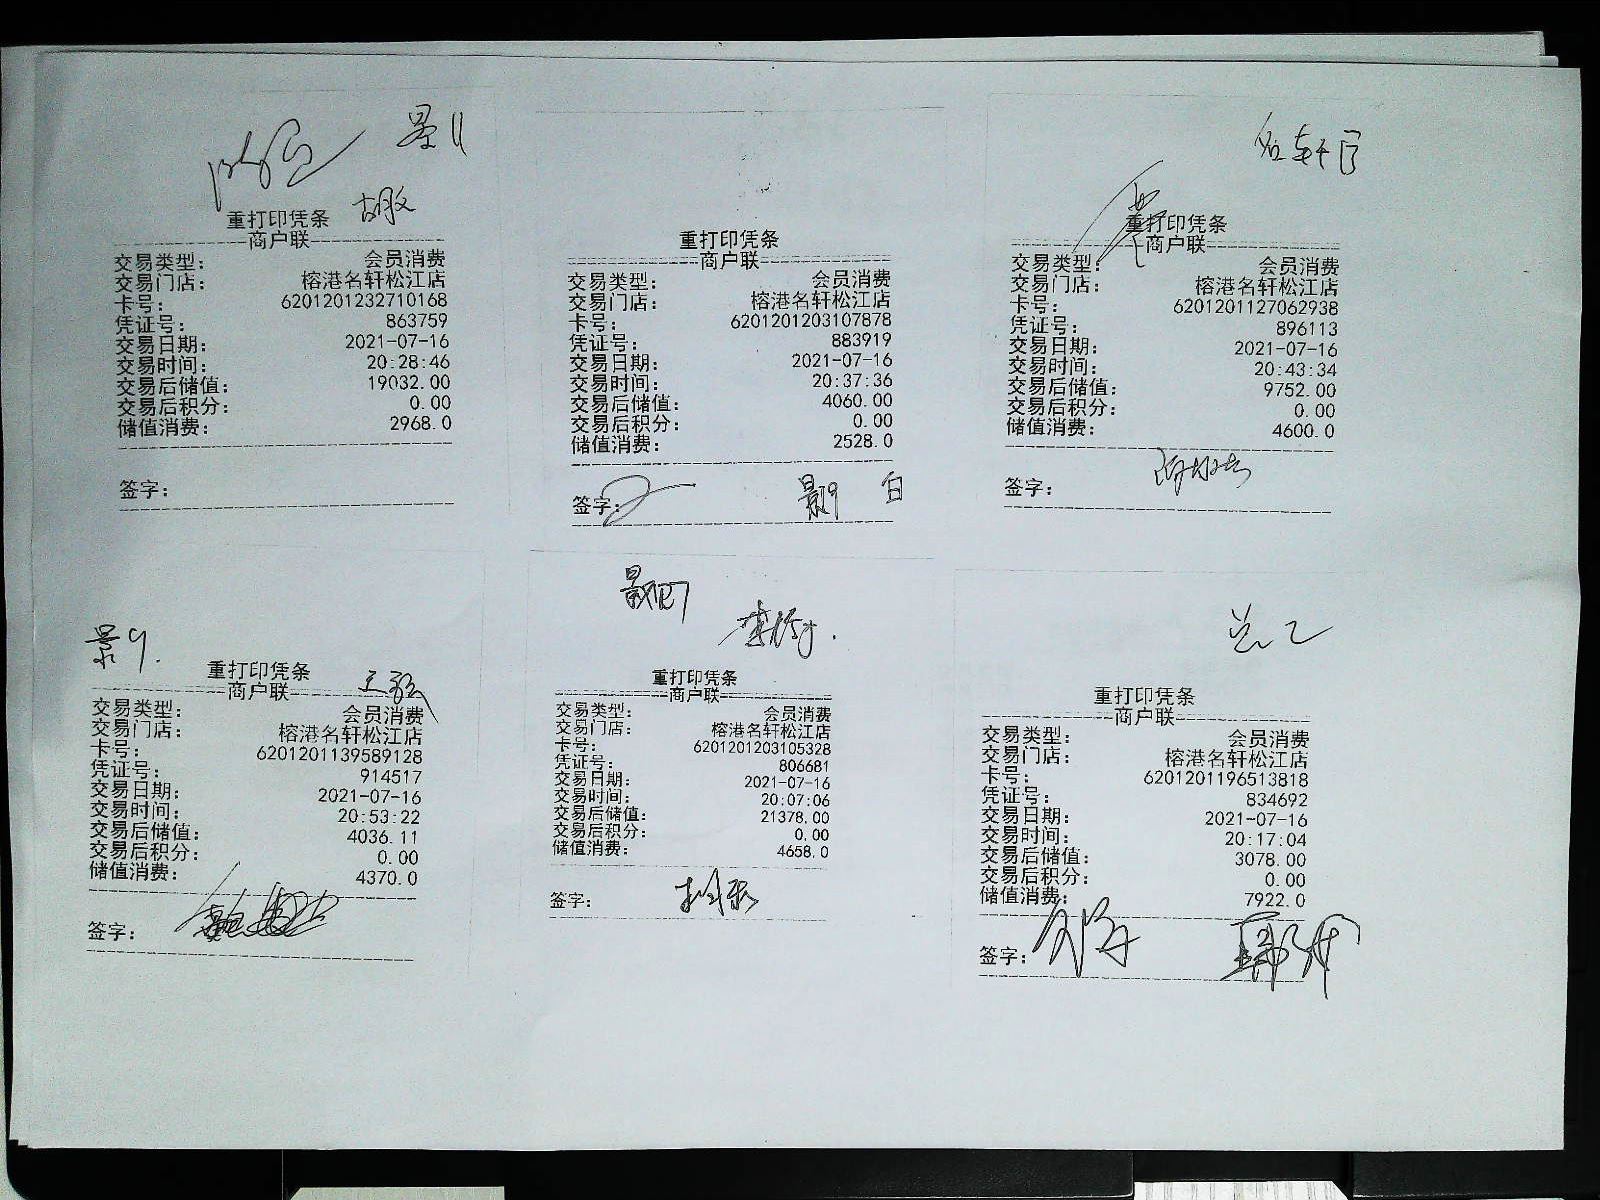 景11
胡敏
重打印凭条
商户联
交易类型： 会员消费
交易门店： 榕港名轩松江店
卡号： 6201201232710168
凭证号： 863759
交易日期： 2021-07-16
交易时间： 20:28:46
交易后储值： 19032.00
交易后积分： 0.00
储值消费： 2968.0
签字：
重打印凭条
商户联
交易类型： 会员消费
交易门店： 榕港名轩松江店
卡号： 6201201203107878
凭证号： 883919
交易日期： 2021-07-16
交易时间： 20:37:36
交易后储值： 4060.00
交易后积分： 0.00
储值消费： 2528.0
签字： 景9 白
重打印凭条
商户联
交易类型： 会员消费
交易门店： 榕港名轩松江店
卡号： 6201201127062938
凭证号： 896113
交易日期： 2021-07-16
交易时间： 20:43:34
交易后储值： 9752.00
交易后积分： 0.00
储值消费： 4600.0
签字：
景9.
重打印凭条
商户联
交易类型： 会员消费
交易门店： 榕港名轩松江店
卡号： 6201201139589128
凭证号： 914517
交易日期： 2021-07-16
交易时间： 20:53:22
交易后储值： 4036.11
交易后积分： 0.00
储值消费： 4370.0
签字：
重打印凭条
商户联
交易类型： 会员消费
交易门店： 榕港名轩松江店
卡号： 6201201203105328
凭证号： 806681
交易日期： 2021-07-16
交易时间： 20:07:06
交易后储值： 21378.00
交易后积分： 0.00
储值消费： 4658.0
签字：
重打印凭条
商户联
交易类型： 会员消费
交易门店： 榕港名轩松江店
卡号： 6201201196513818
凭证号： 834692
交易日期： 2021-07-16
交易时间： 20:17:04
交易后储值： 3078.00
交易后积分： 0.00
储值消费： 7922.0
签字：